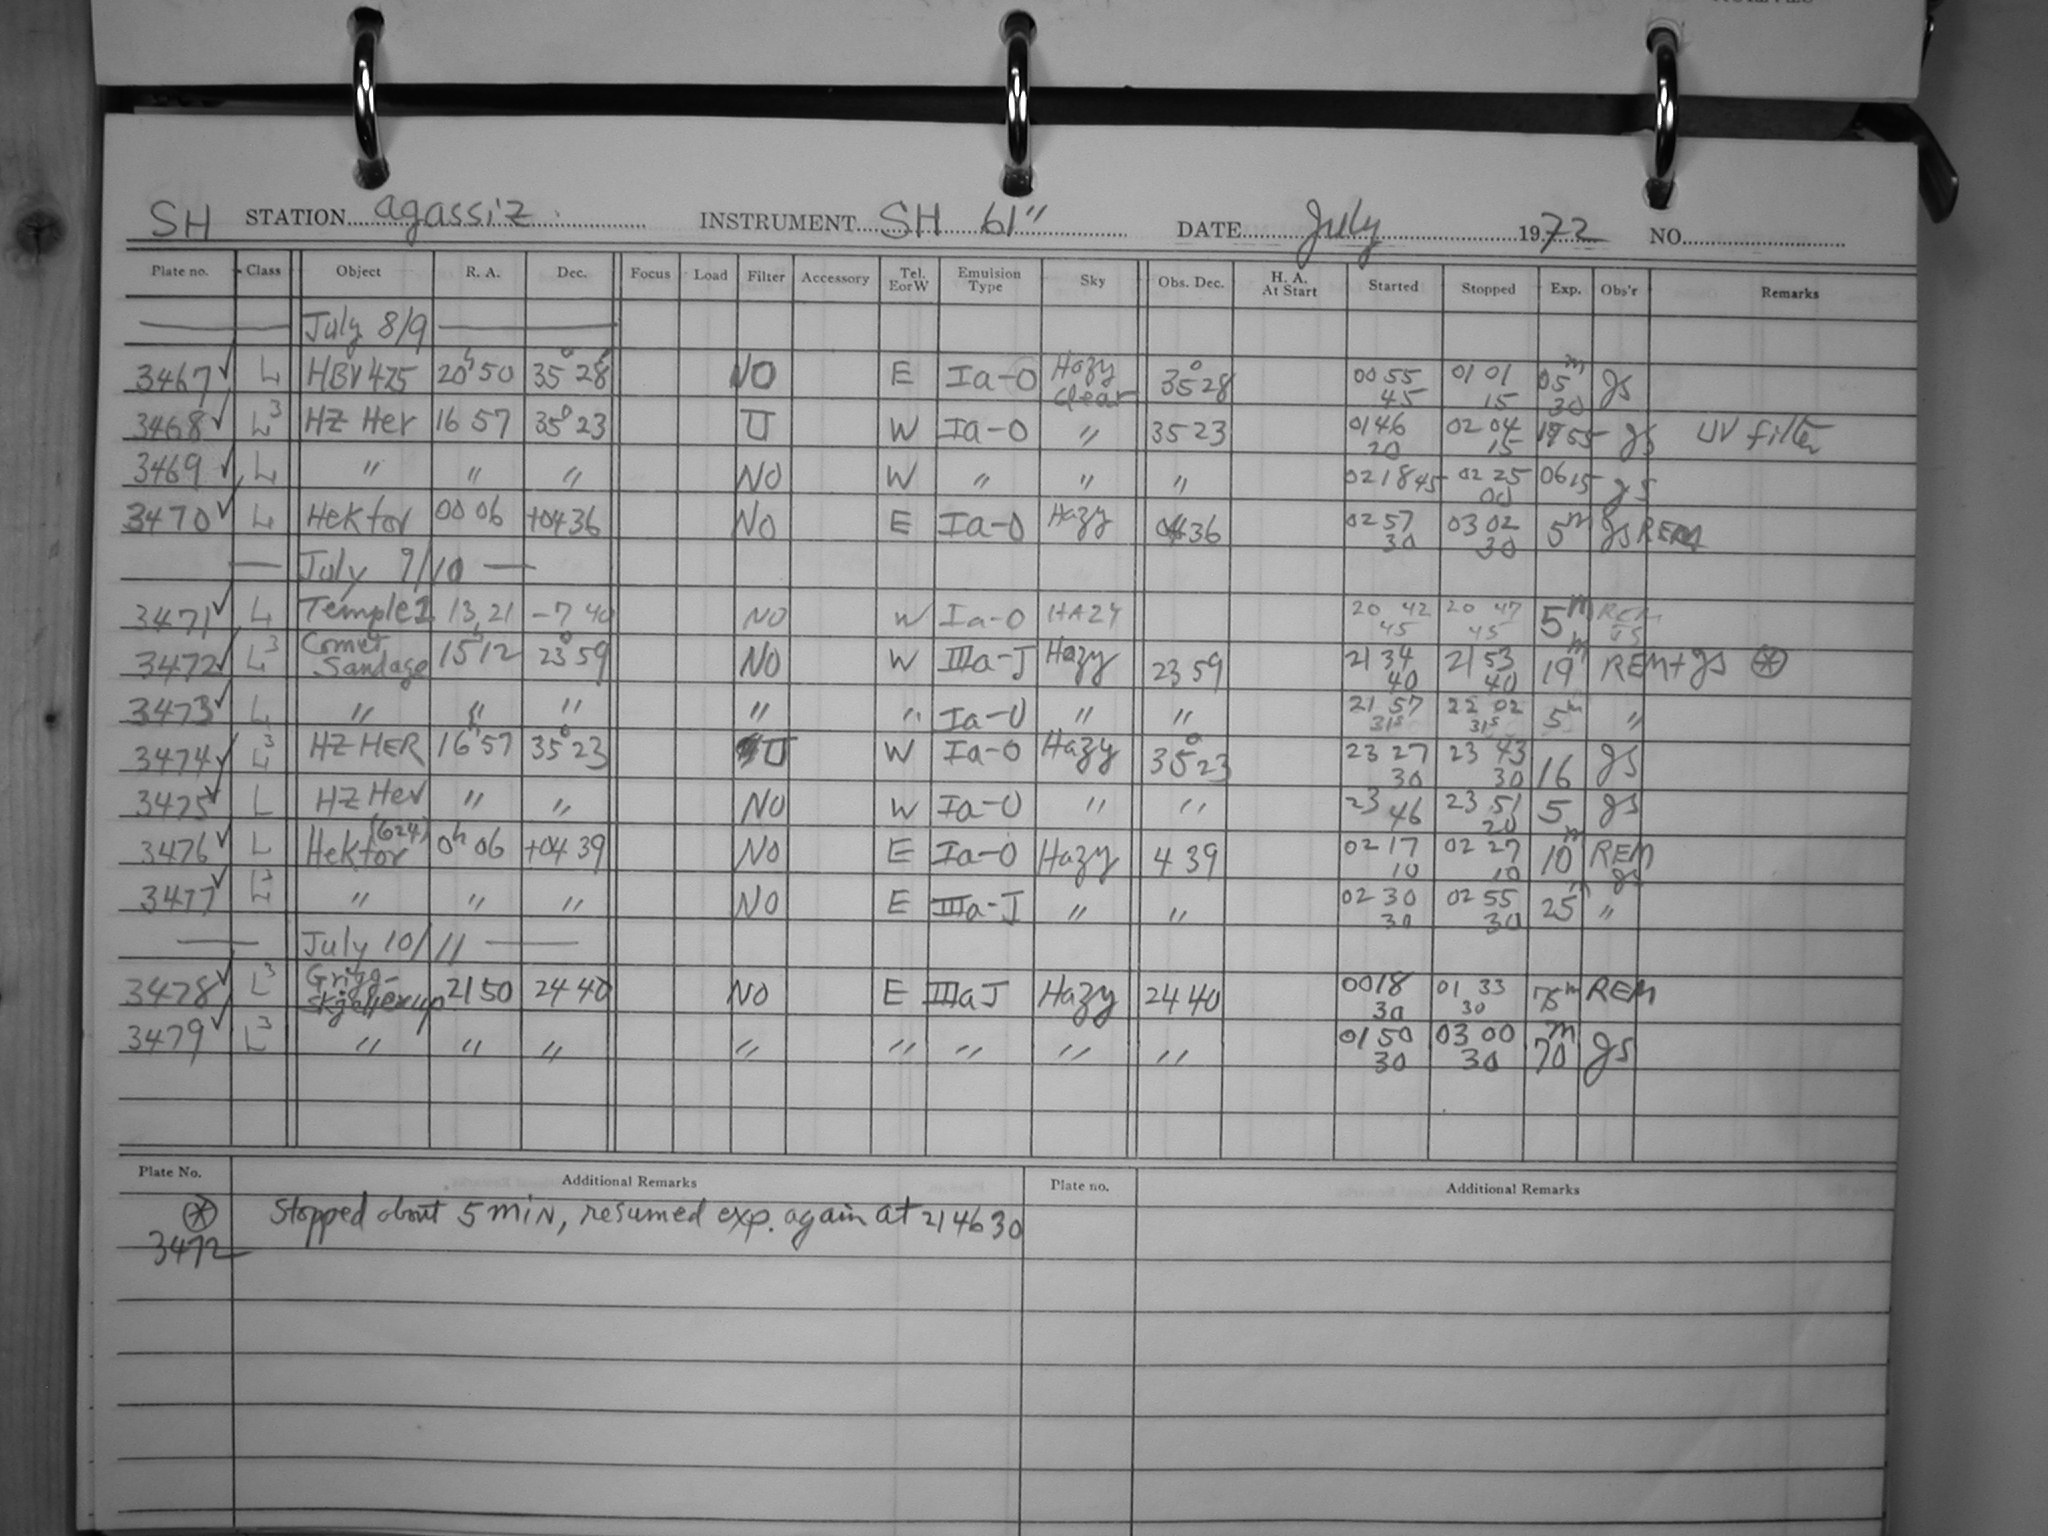 SH STATION agassiz INSTRUMENT SH 61" DATE July 1972 NO.
Plate no. Class Object R. A. Dec. Focus Load Filter Accessory Tel. EorW Emulsion Type Sky Obs. Dec. H. A. At Start Started Stopped Exp. Obs'r Remarks
July 8/9
3467 ✓ L HBV 475 20h 50 35° 28' NO E Ia-O Hazy clear 35° 28 00 55 45 01 01 15 05m 30 gs
3468 ✓ L3 HZ Her 16 57 35° 23 U W Ia-O " 35 23 01 46 20 02 04 15 55 gs UV filter
3469 ✓ L " " " NO W " " " 02 18 45 02 25 00 06 15 gs
3470 ✓ L Hektor 00 06 +04 36 NO E Ia-O Hazy 04 36 02 57 30 03 02 30 5m gs REM
July 9/10
3471 ✓ L Temple 1 13 21 -7 40 NO W Ia-O HAZY 20 42 45 20 47 45 5m REM gs
3472 ✓ L3 Comet Sandage 15h 12 23° 59 NO W IIIa-J Hazy 23 59 21 34 40 21 53 40 19m REM+gs ⊛
3473 ✓ L " " " " " Ia-O " " 21 57 31s 22 02 31s 5m "
3474 ✓ L3 HZ HER 16h 57 35° 23 U W Ia-O Hazy 35° 23 23 27 30 23 43 30 16 gs
3475 ✓ L HZ Her " " NO W Ia-O " " 23 46 23 51 20 5 gs
3476 ✓ L Hektor (624) 0h 06 +04 39 NO E Ia-O Hazy 4 39 02 17 10 02 27 10 10m REM gs
3477 ✓ L3 " " " NO E IIIa-J " " 02 30 30 02 55 30 25m "
July 10/11
3478 ✓ L3 Grigg-Skjellerup 21 50 24 40 NO E IIIa J Hazy 24 40 00 18 30 01 33 30 75m REM
3479 ✓ L3 " " " " " " " " 01 50 30 03 00 30 70m gs
Plate No. Additional Remarks Plate no. Additional Remarks
⊛ 3472 Stopped about 5 min, resumed exp. again at 21 46 30